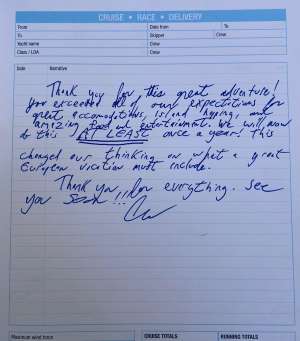 CRUISE • RACE • DELIVERY
From Date from To
To Skipper Crew
Yacht name Crew
Class / LOA Crew
Date Narrative
Thank you for this great adventure!
You exceeded all of our expectitions for
great accomodations, Island hopping, and
amazing food and entertainment. We will now
do this AT LEASE once a year! This
changed our thinking on what a great
European vacation must include.
Thank you for everything. See
you soon!!!
Maximum wind force CRUISE TOTALS RUNNING TOTALS